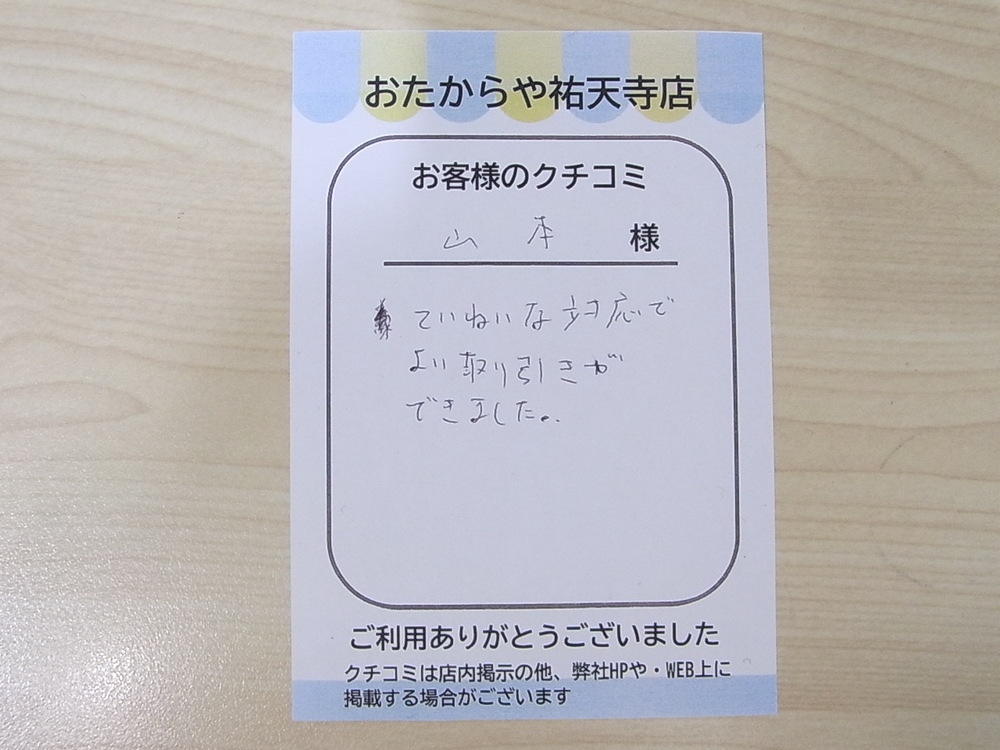 おたからや祐天寺店
お客様のクチコミ
山本 様
ていねいな対応で
よい取り引きが
できました。
ご利用ありがとうございました
クチコミは店内掲示の他、弊社HPや・WEB上に
掲載する場合がございます